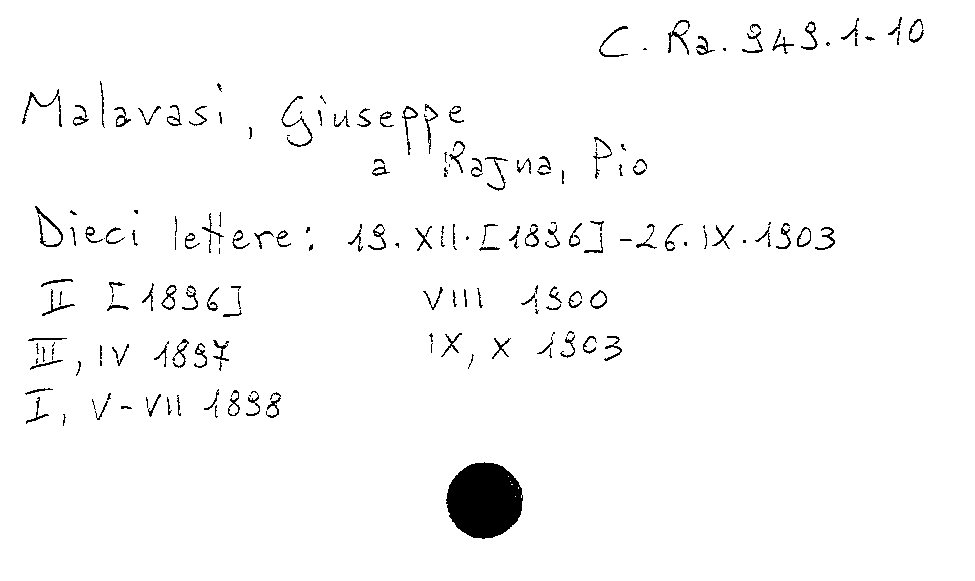 C. Ra. 949.1-10
Malavasi, Giuseppe
a Rajna, Pio
Dieci lettere: 19.XII.[1896]-26.IX.1903
II [1896]
III, IV 1897
I, V-VII 1898
VIII 1900
IX, X 1903